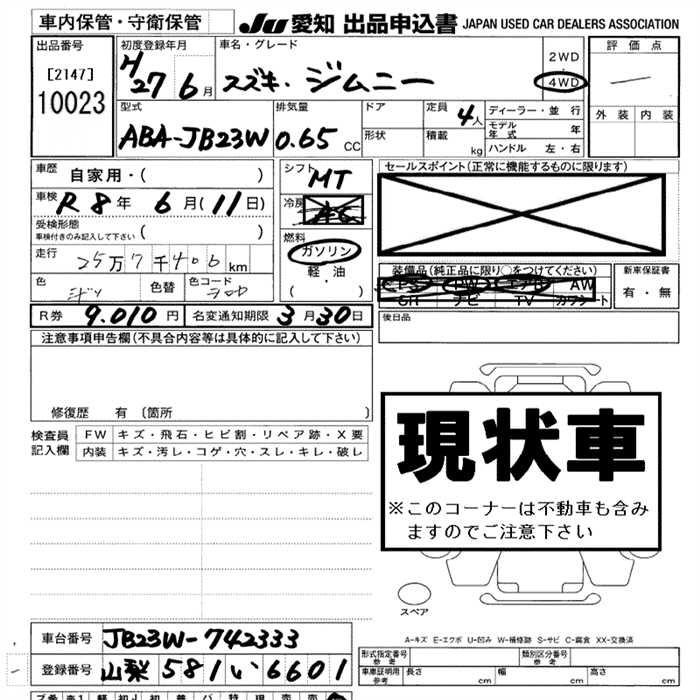 車内保管・守衛保管
JU 愛知 出品申込書 JAPAN USED CAR DEALERS ASSOCIATION
出品番号
[2147]
10023
初度登録年月
H27 6月
車名・グレード
スズキ. ジムニー
2WD
・
4WD
評価点
外装 内装
型式
ABA-JB23W
排気量
0.65 CC
ドア
形状
定員 4人
積載 kg
ディーラー・並行
モデル年式 年
ハンドル 左・右
車歴 自家用・( )
車検 R8年 6月(11日)
受検形態
車検付きのみ記入して下さい ( )
走行 25万7千406km
色
色替
色コード
シフト MT
冷房 AC
燃料
ガソリン
軽・油
( )
セールスポイント(正常に機能するものに限ります)
装備品(純正品に限り○をつけてください)
PS PW エアB AW
SR ナビ TV カワシート
新車保証書
有・無
後日品
R券 9.010円 名変通知期限 3月30日
注意事項申告欄(不具合内容等は具体的に記入して下さい)
修復歴 有 〔箇所 〕
検査員記入欄
FW キズ・飛石・ヒビ割・リペア跡・X要
内装 キズ・汚レ・コゲ・穴・スレ・キレ・破レ
現状車
※このコーナーは不動車も含み
ますのでご注意下さい
スペア
A-キズ E-エクボ U-凹み W-補修跡 S-サビ C-腐食 XX-交換済
車台番号 JB23W-742333
登録番号 山梨 581 い 6601
形式指定番号 参考
類別区分番号 参考
車庫証明用 参考
長さ cm 幅 cm 高さ cm